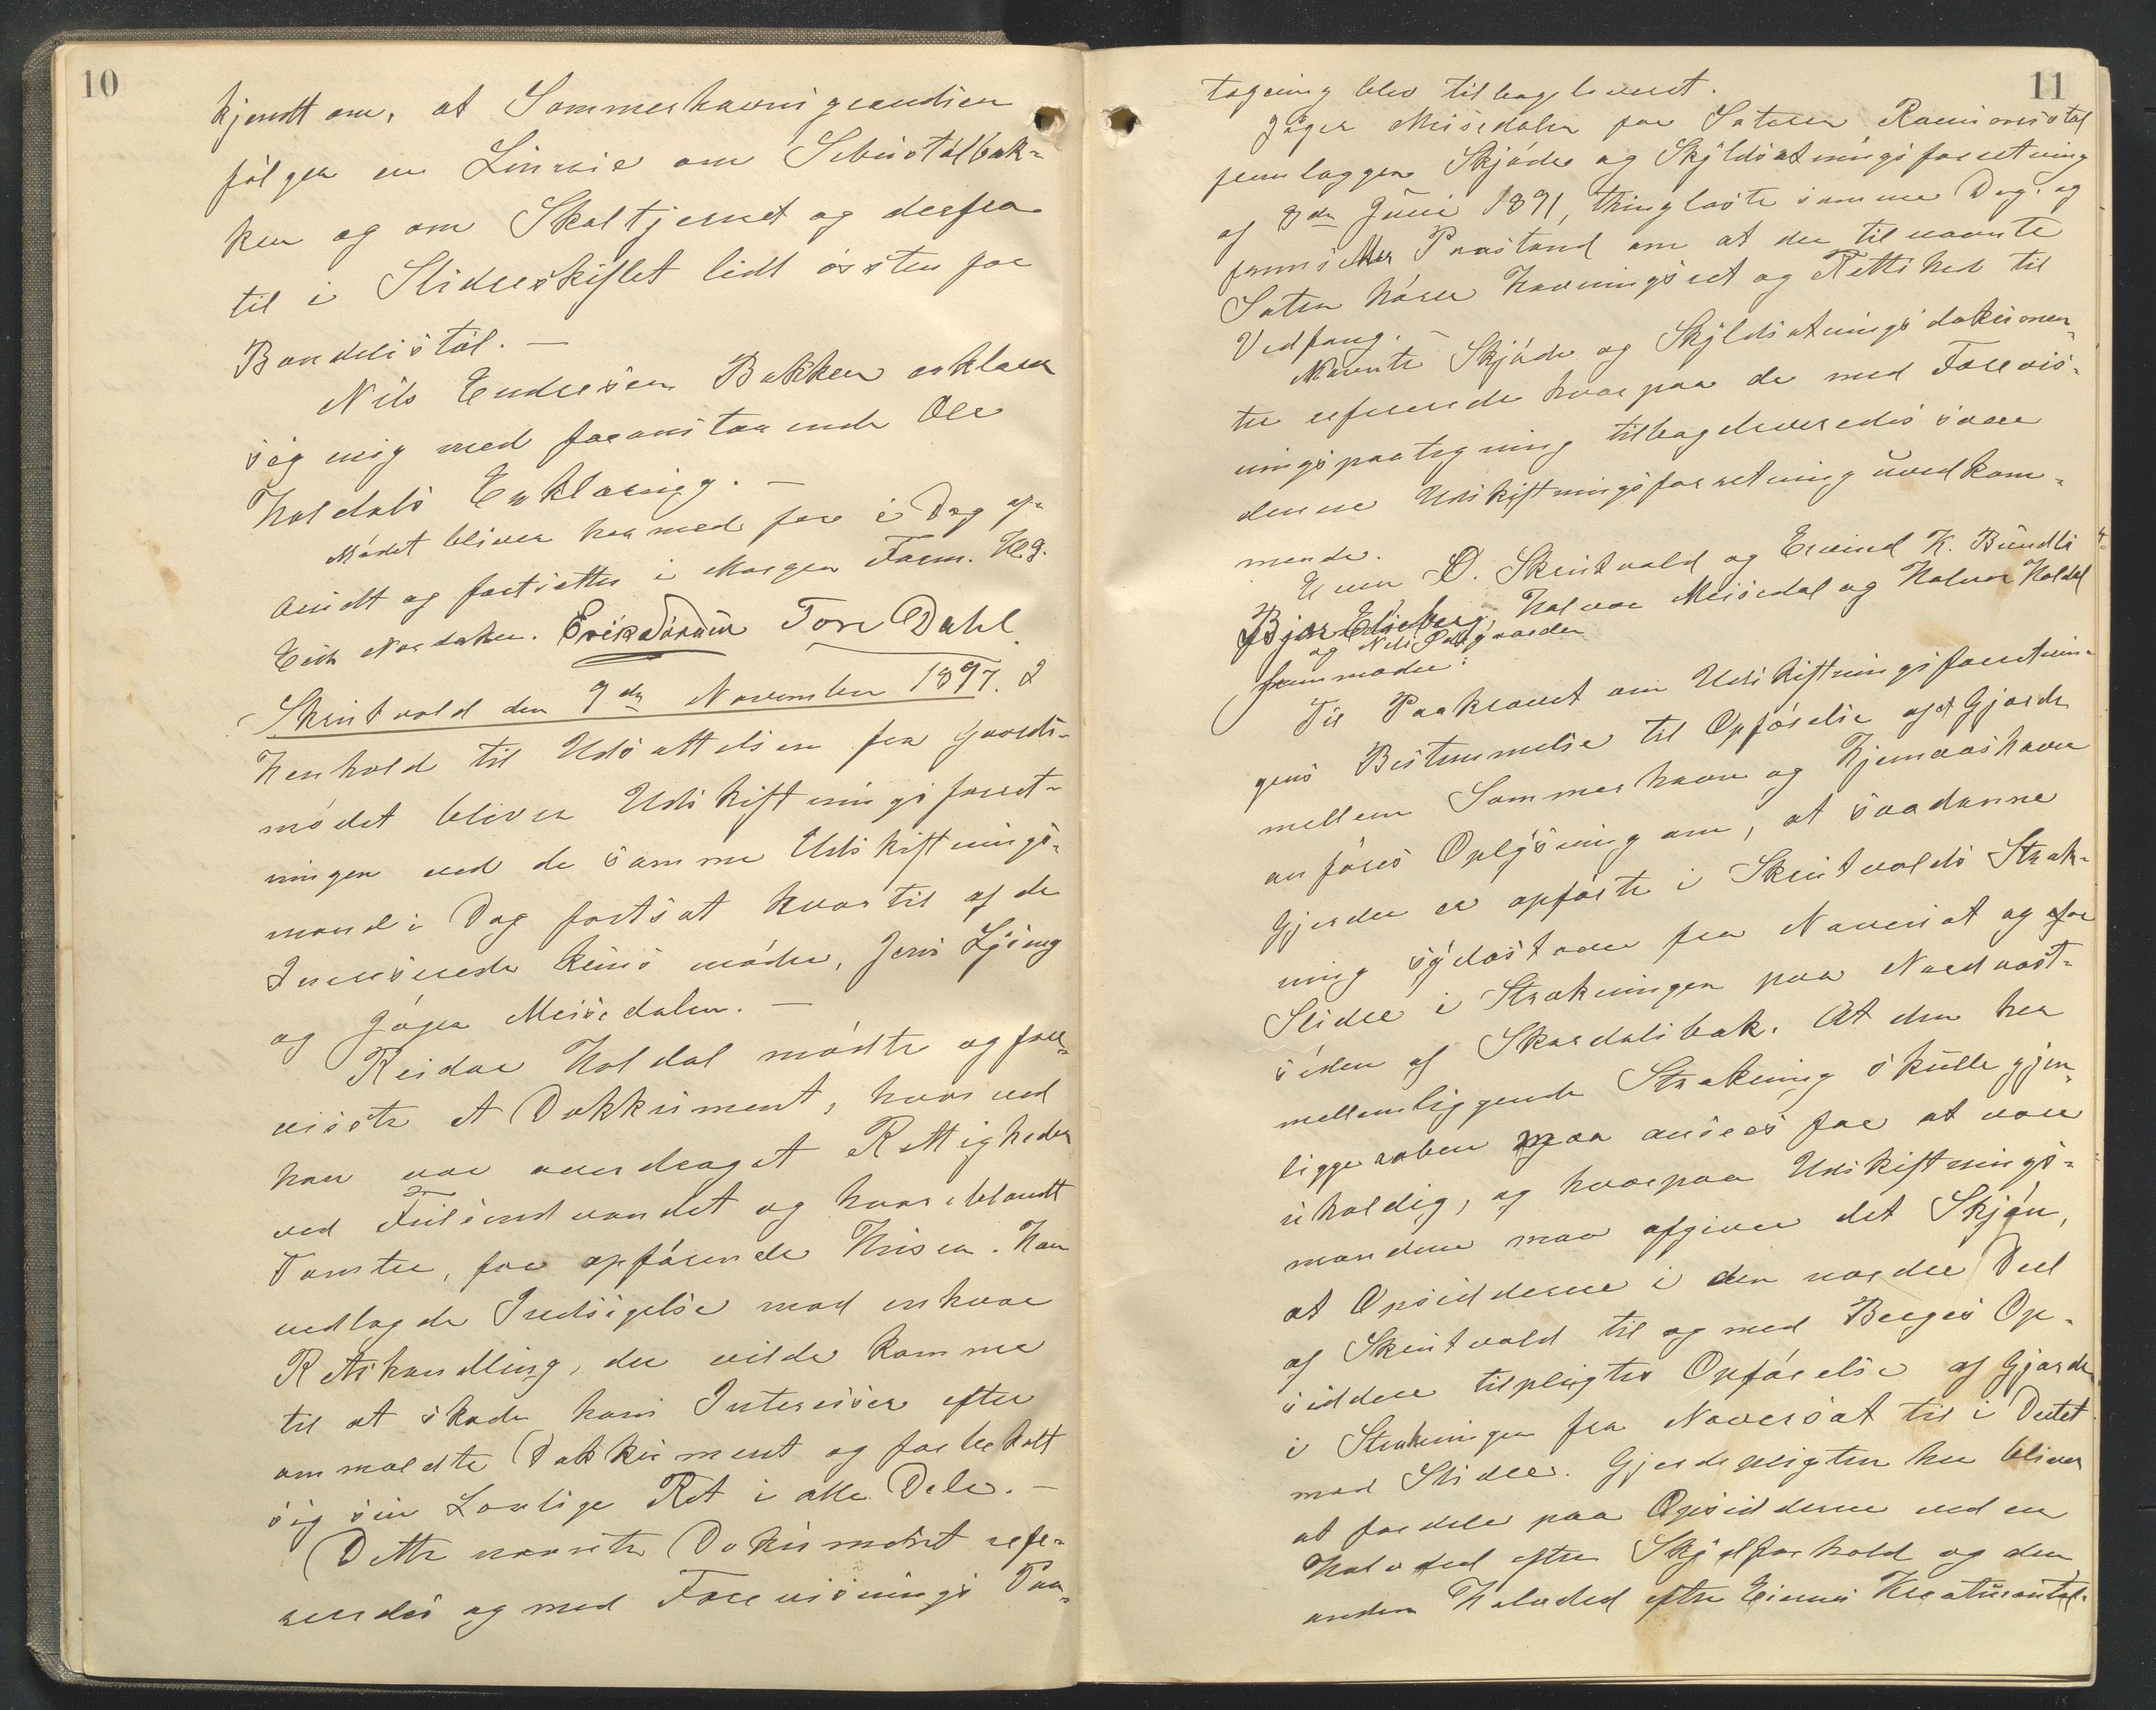 10
kjendt om, at Sommerhavnsgrændsen
følger en Linnie om Sebustølbak=
ken og om Skaltjernet og derfra
til i Slidreskiftet lidt østen for
Bondlistøl. —
Nils Endresen Bakken erklærer
sig enig med foranstaaende Ole
Holdals Erklæring. —
Mødet bliver hermed for i Dag af=
brudt og fortsættes i Morgen Form. Kl 9.
Erik Nordaker. Erik Sørum Tore Dahl
Skrutvold den 9de November 1897. I
Henhold til Udsættelsen fra Gaards=
mødet bliver Udskiftningsforret=
ningen ved de samme Udskiftnings=
mænd i Dag fortsat hvortil af de
Interserede kuns møder, Jens Ljøng
og Jøger Meisedalen. —
Reidar Holdal mødte og fore=
viste et Dokkument, hvorved
han var overdraget Rettigheder
ved Fulsendvandet og hvoriblandt
Tomter, for opførende Huser. Han
nedlagde Indsigelse mod enhver
Retshandling, der vilde komme
til at skade hans Interesser efter
ommeldte Dokkument og forbeholdt
sig sin Lovlige Ret i alle Dele. —
Dette nævnte Dokument refe=
reredes og med Forevisnings Paa=
11
tegning blev tilbageleveret.
Jøger Meisedalen for Sæteren Ravnsstøl
fremlægger Skjøde og Skyldsætningsforretning
af 8de Juni 1891, thinglæste samme Dag og
fremsætter Paastand om at der til nævnte
Sæter hører Havningsret og Rettighed til
Vedfang. —
Nævnte Skjøde og Skyldsætningsdokumen=
ter refererede hvorpaa de med Forevis=
ningspaategning tilbageleveredes som
denne Udskiftningsforretning uvedkom=
mende.
Even O. Skrutvold og Eivind K. Bundli
Bjør Elisberg, Halvor Meisedal og Halvor Holdal
og Nils Gaarden
fremmøder:
Til Paakravet om Udskiftningsforretnin=
gens Bestemmelse til Opførelse af et Gjærde
mellem Sommerhavn og Hjemraashavn
anføres Oplysning om, at saadanne
Gjerder er opførte i Skrutvolds Stræk=
ning sydøstover fra Naversæt og for
Slidre i Strækningen paa Nordvest=
siden af Skardalsbæk. At den her
mellemliggende Strækning skulle gjen=
ligge aaben maa ansees for at være
uheldig, og hvorpaa Udskiftnings=
mændene maa afgiver det Skjøn,
at Opsidderne i den nordre Deel
af Skrutvold til og med Berges Op=
siddere tilpligtes Opførelse af Gjærde
i Strækningen fra Naversæt til i Deelet
mod Slidre. Gjerdepligten her bliver
at fordele paa Opsidderne ved en
Halvdeel efter Skyldforhold og den
anden Halvdeel efter Eiernes Kreaturantal.